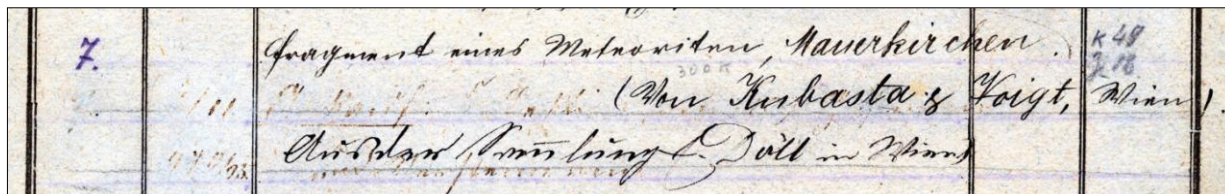 7. Fragment eines Meteoriten, Mauerkirchen. K 48
300 K J 18
(Von Kubasta & Voigt, Wien)
Aus der Sammlung E. Döll in Wien)